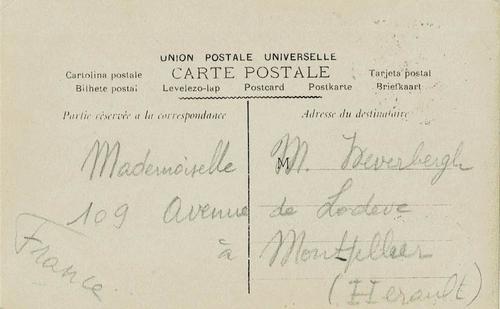 UNION POSTALE UNIVERSELLE
CARTE POSTALE
Cartolina postale
Tarjeta postal
Bilhete postal Levelezo-lap Postcard Postkarte Briefkaart
Partie réservée a la correspondance
Adresse du destinataire
Mademoiselle M. Weverbergh
109 Avenue de Lodeve
à Montpellier
(Herault)
France